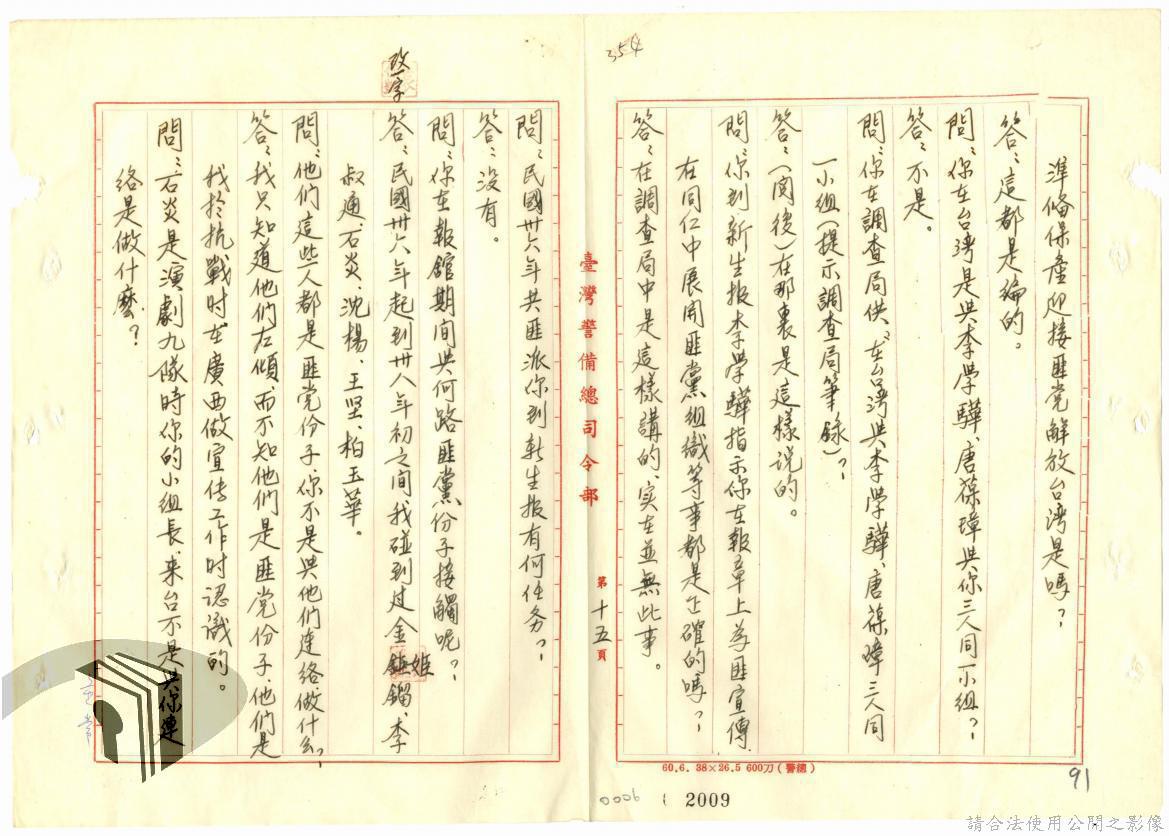 354
準備保產迎接匪党解放台湾是嗎？
答：這都是編的。
問：你在台湾是共李學驊、唐葆瑋共你三人同一小組？
答：不是。
問：你在調查局供，在台湾共李學驊、唐葆暐三人同
一小組（提示調查局筆錄）？
答：（阅後）在那裏是這樣説的。
問：你到新生报李學驊指示你在報章上為匪宣傳
在同仁中展開匪黨組織等事都是正確的嗎？
答：在調查局中是這樣講的，实在並無此事。
臺灣警備總司令部
第十五頁
問：民國卅六年共匪派你到新生报有何任务？
答：没有。
問：你在報舘期间共何路匪黨份子接觸呢？
改一字
答：民國卅六年起到卅八年初之间，我碰到过金姬鎦、李
叔通、石炎、沈楊、王坚、柏玉華。
問：他们這些人都是匪党份子，你不是共他们連络做什么？
答：我只知道他们左傾，而不知他们是匪党份子，他们是
我於抗戰时在廣西做宣传工作时認識的。
問：石炎是演劇九隊時你的小組長，来台不是共你連
络是做什麽？
60.6. 38×26.5 600刀（警總）
91
0006
2009
請合法使用公開之影像